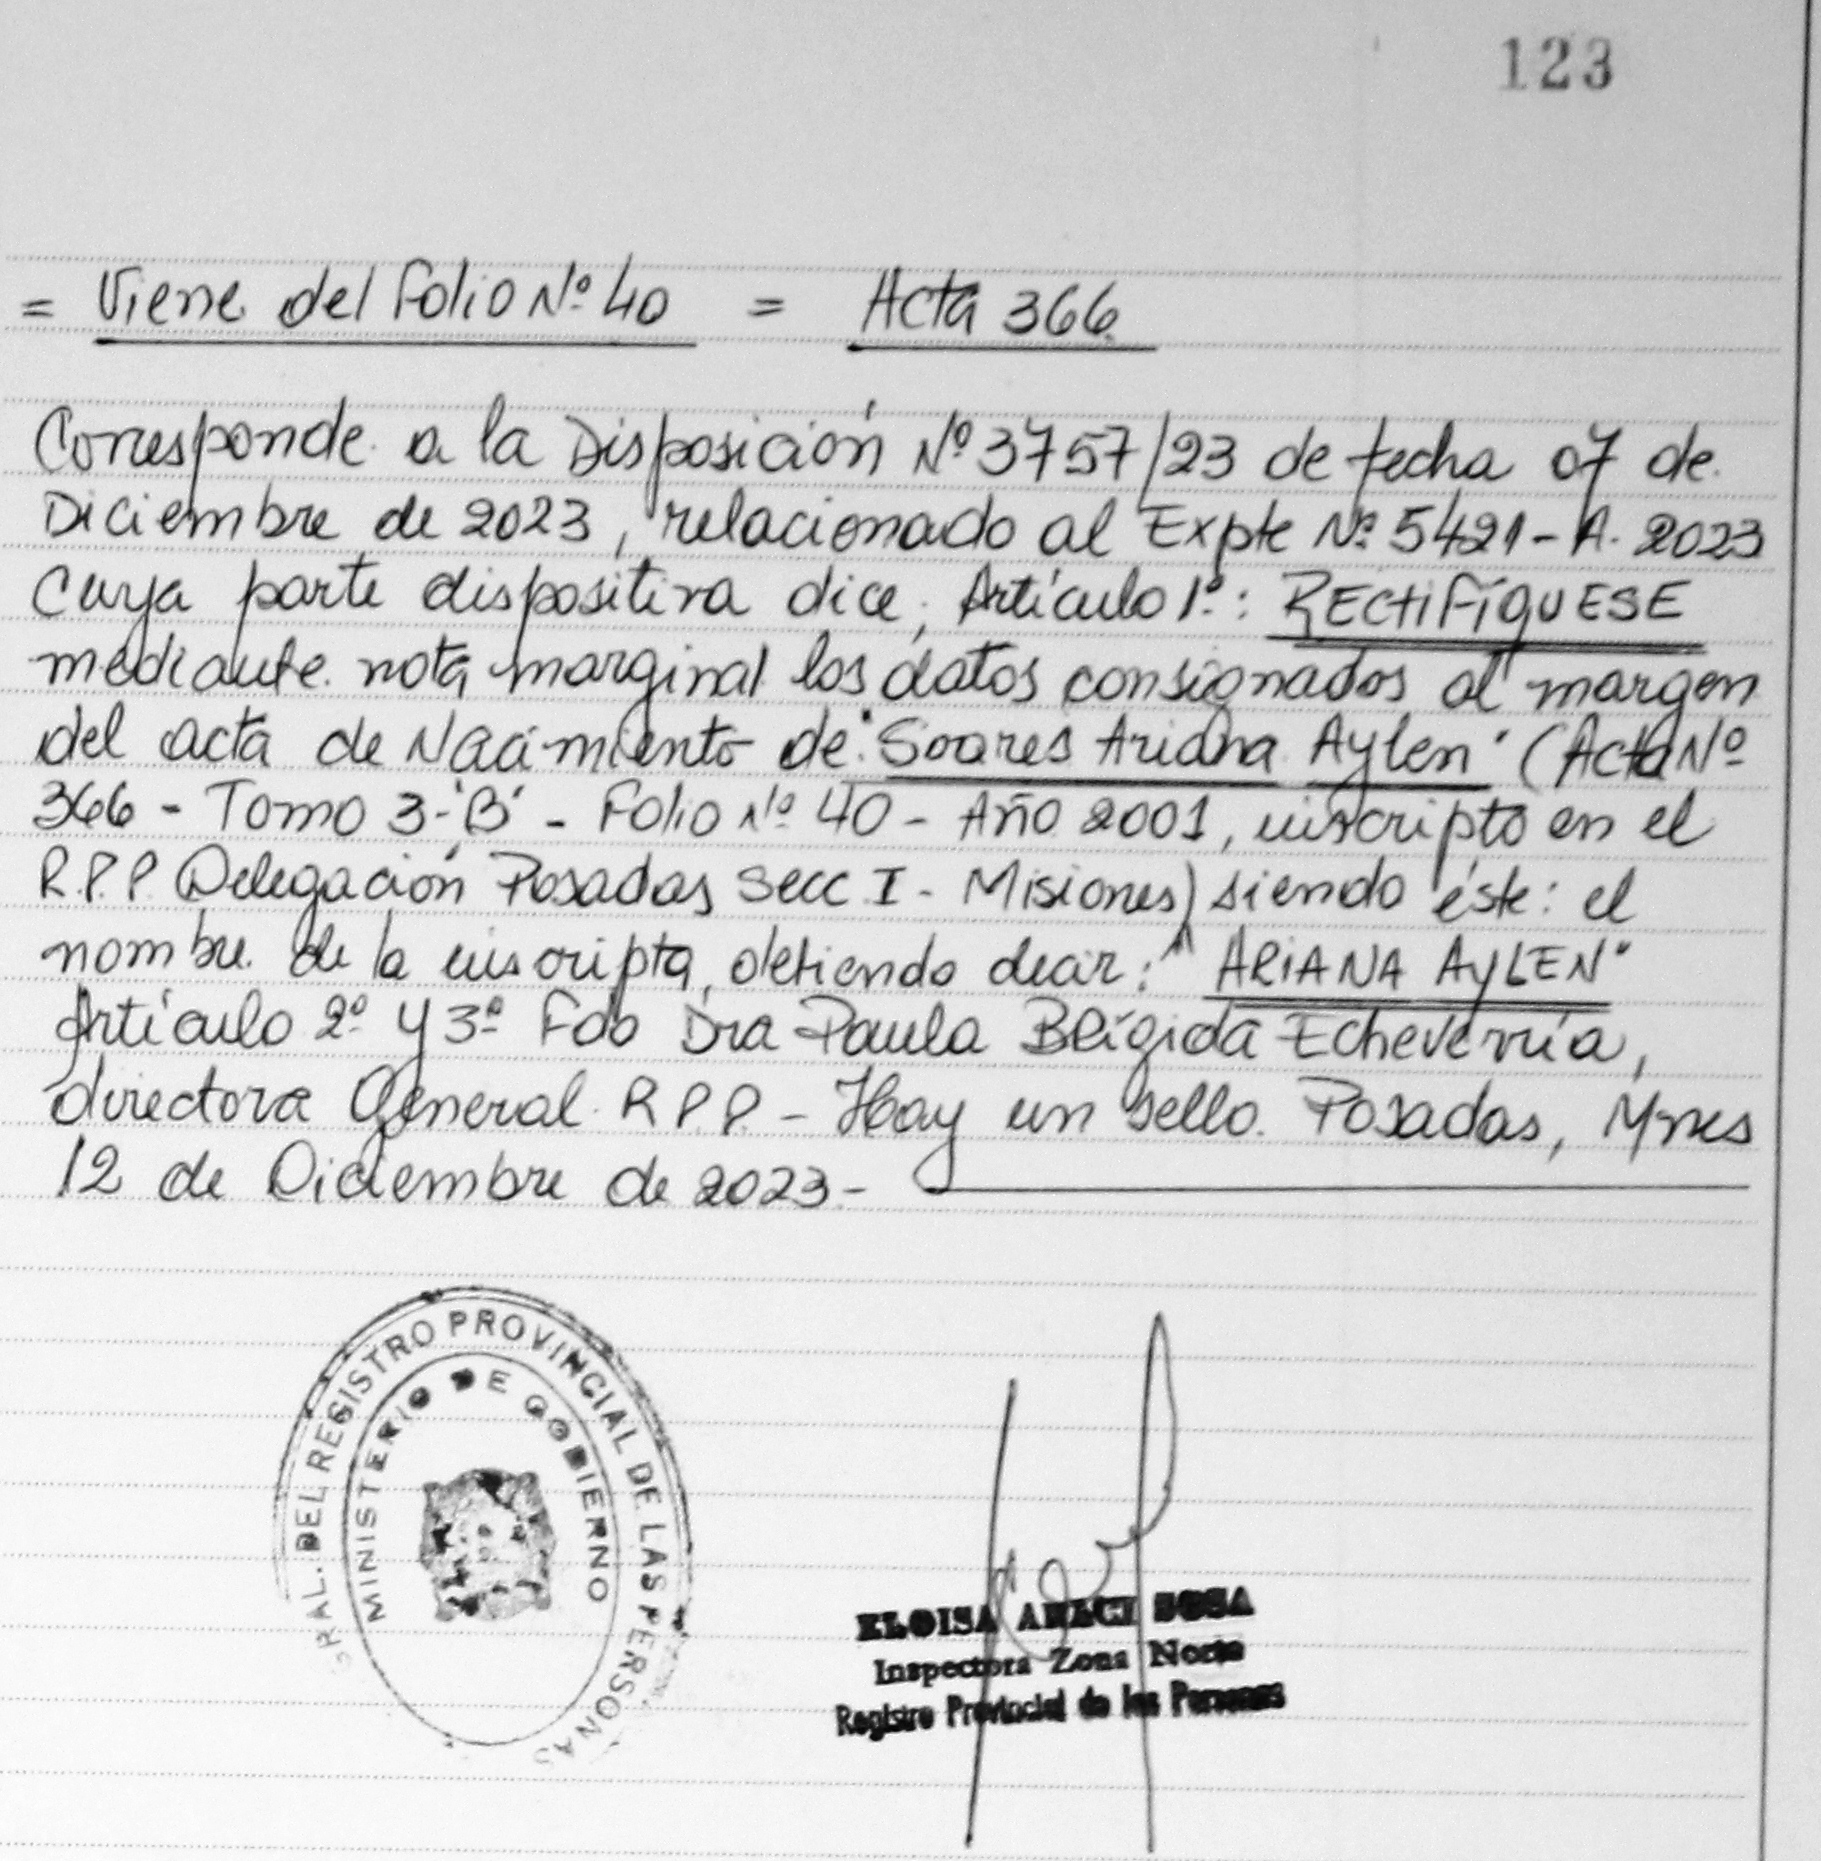 123
= Viene del Folio Nº 40 = Acta 366
Corresponde a la Disposición Nº 3757/23 de fecha 07 de
Diciembre de 2023, relacionado al Expte Nº 5421-A. 2023
Cuya parte dispositiva dice, Artículo 1º: RECTIFÍQUESE
mediante nota marginal los datos consignados al margen
del acta de Nacimiento de "Soares Ariana Aylen" (Acta Nº
366 - Tomo 3-"B" - Folio Nº 40 - Año 2001, inscripto en el
R.P.P. Delegación Posadas Secc I - Misiones) siendo éste: el
nombre de la inscripta, debiendo decir: "ARIANA AYLEN"
Artículo 2º y 3º Fdo Dra Paula Brígida Echeverría,
directora General R.P.P. - Hay un sello. Posadas, Mnes
12 de Diciembre de 2023-
GRAL. DEL REGISTRO PROVINCIAL DE LAS PERSONAS
MINISTERIO DE GOBIERNO
ELOISA ARACI SOSA
Inspectora Zona Norte
Registro Provincial de las Personas